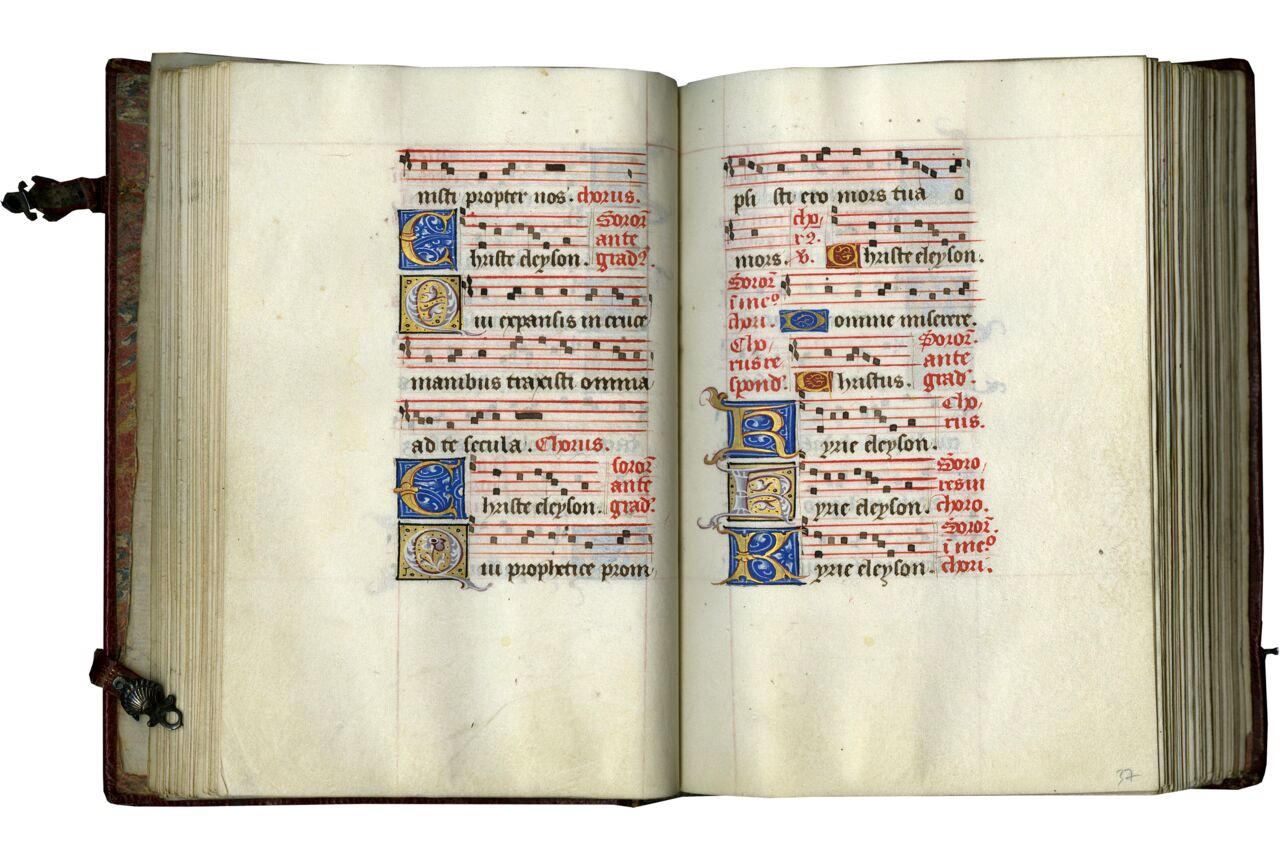 nisti propter nos. chorus.
Christe eleyson. Soror̃
ante
grad⁹.
Qui expansis in cruce
manibus traxisti omnia
ad te secula. Chorus.
Christe eleyson. soror̃
ante
grad⁹.
Qui prophetice prom
psi sti ero mors tua o
mors. cho
rꝰ.
v. Christe eleyson.
Soror̃
ĩ meº
chori. Domine miserere.
Cho
rus re
spond⁹. Christus. Soror̃.
ante
grad⁹.
Kyrie eleyson. Cho
rus.
Kyrie eleyson. Soro
res in
choro.
Kyrie eleyson. Soror̃.
ĩ meº
chori.
37